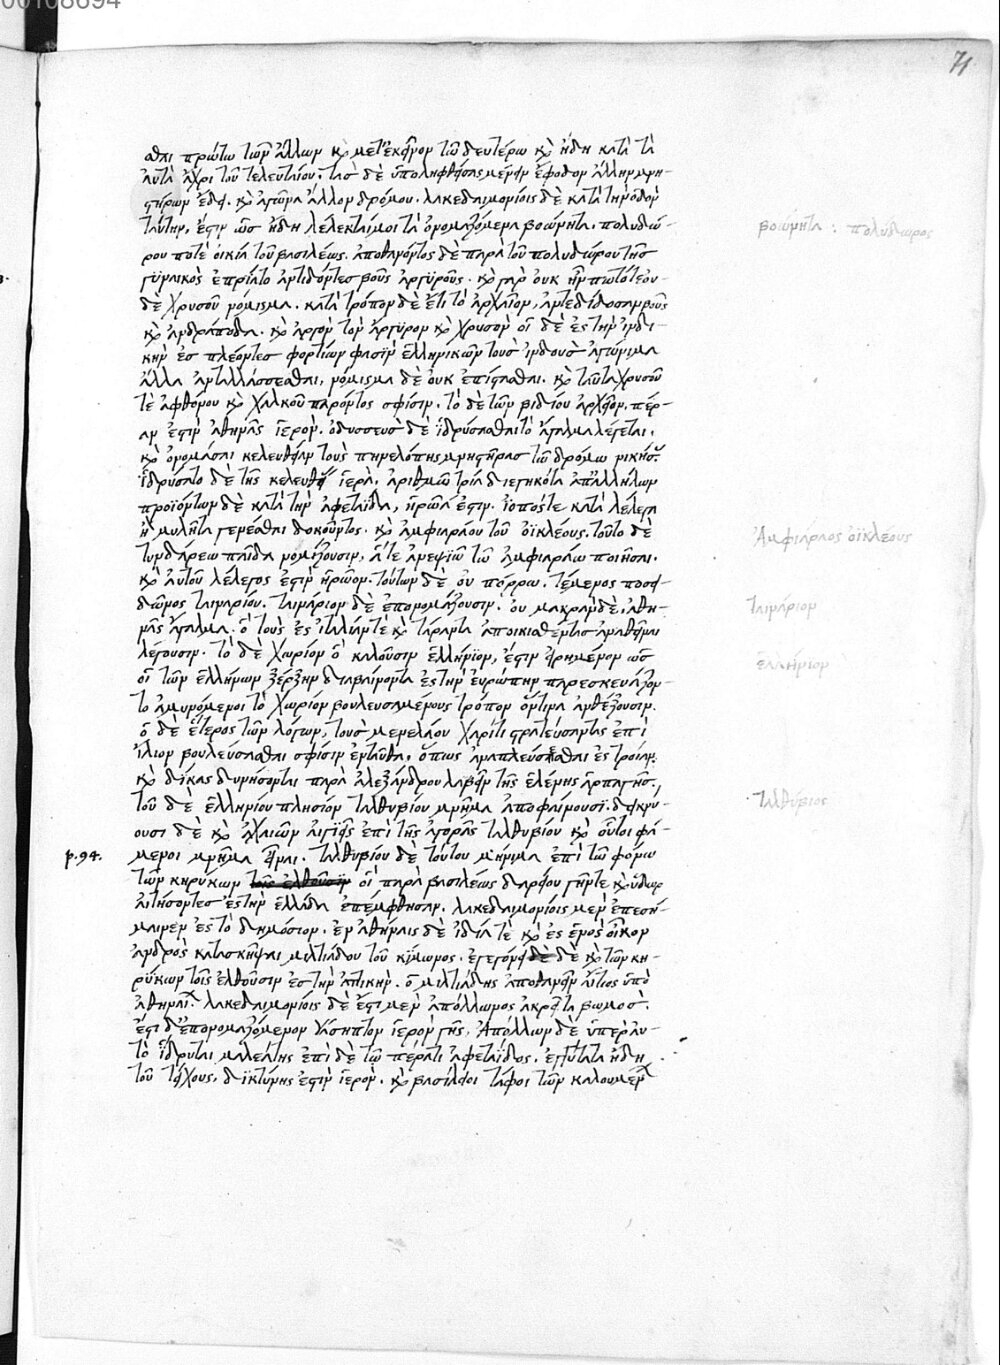 00108694
71
σθαι πρώτω τῶν ἄλλων καὶ μετ' ἐκεῖνον τῶ δευτέρω καὶ ἤδη κατὰ τὰ
αὐτὰ ἄχρι τοῦ τελευταίου. τὰς δὲ ὑποληφθείσας μένειν ἔφοδον ἄλλην μνη-
στήρων ἔδει. καὶ ἀγῶνα ἄλλον δρόμου. λακεδαιμονίοις δὲ κατὰ τὴν ὁδὸν
ταύτην, ἔστιν ὡς ἤδη λέλεκταί μοι τὰ ὀνομαζόμενα βοώνητα. πολυδώ-
βοώνητα : πολύδωρος
ρου ποτὲ οἰκία τοῦ βασιλέως. ἀποθανόντος δὲ παρὰ τοῦ πολυδώρου τῆς
γυναικὸς ἐπρίαντο ἀντιδόντες βοῦς ἀργύρους. καὶ γὰρ οὐκ ἦν πω τότε οὐ-
δὲ χρυσοῦ νόμισμα. κατὰ τρόπον δὲ ἔτι τὸ ἀρχαῖον, ἀντεδίδοσαν βοῦς
καὶ ἀνδράποδα. καὶ ἀργὸν τὸν ἄργυρον καὶ χρυσὸν οἱ δὲ ἐς τὴν ἰνδι-
κὴν ἐσπλέοντες φορτίων φασὶν ἑλληνικῶν τοὺς ἰνδοὺς ἀγώγιμα
ἄλλα ἀνταλλάσσεσθαι, νόμισμα δὲ οὐκ ἐπίστασθαι. καὶ ταῦτα χρυσοῦ
τὲ ἀφθόνου καὶ χαλκοῦ παρόντος σφίσιν. τὸ δὲ τῶν βιδίου ἀρχεῖον. πέρ-
αν ἐστὶν ἀθηνᾶς ἱερόν. ὀδυσσεὺς δὲ ἱδρύσασθαι τὸ ἄγαλμα λέγεται.
καὶ ὀνομάσαι κελευθείαν τοὺς πηνελόπης μνηστῆρας τῶ δρόμω νικήσας
ἱδρύσατο δὲ τῆς κελευθείας ἱερὰ. ἀριθμῶ τρία διεστηκότα ἀπ' ἀλλήλων
προϊόντων δὲ κατὰ τὴν ἀφεταΐδα, ἡρῶά ἐστιν. ἴοπός τε κατὰ λέλεγα
ἢ μύλητα γενέσθαι δοκοῦντος. καὶ ἀμφιαράου τοῦ ὀϊκλέους. τοῦτο δὲ
Ἀμφιάραος ὀϊκλέους
τυνδάρεω παῖδα νομίζουσιν, ἅτε ἀνεψιῶ τῶ ἀμφιαράω ποιῆσαι.
καὶ αὐτοῦ λέλεγος ἐστὶν ἡρῶον. τούτων δὲ οὐ πόρρω. τέμενος ποσει-
δῶνος ταιναρίου. ταινάριον δὲ ἐπονομάζουσιν. οὐ μακρὰν δὲ, ἀθη-
ταινάριον
νᾶς ἄγαλμα. ὃ τοὺς ἐς ἰταλίαν τὲ καὶ τάραντα ἀποικισθέντας ἀναθεῖναι
λέγουσιν. τὸ δὲ χωρίον ὃ καλοῦσιν ἑλλήνιον, ἐστὶν εἰρημένον ὡς
ἑλλήνιον
οἱ τῶν ἑλλήνων ξέρξην διαβαίνοντα ἐς τὴν εὐρώπην παρεσκευάζον-
το ἀμυνόμενοι τὸ χωρίον βουλευσαμένους τρόπον ὅντινα ἀνθέξουσιν.
ὁ δὲ ἕτερος τῶν λόγων, τοὺς μενελάου χάριτι στρατεύσαντας ἐπὶ
ἴλιον βουλεύσασθαι σφίσιν ἐνταῦθα, ὅπως ἀναπλεύσεσθαι ἐς τροίαν.
καὶ δίκας δυνήσονται παρὰ ἀλεξάνδρου λαβεῖν τῆς ἑλένης ἁρπαγῆς.
τοῦ δὲ ἑλληνίου πλησίον ταλθυβίου μνῆμα ἀποφαίνουσι. δεικνύ-
ταλθύβιος
ουσι δὲ καὶ ἀχαιῶν αἰγιεῖς ἐπὶ τῆς ἀγορᾶς ταλθυβίου καὶ οὗτοι φά-
p.94.
μενοι μνῆμα εἶναι. ταλθυβίου δὲ τούτου μήνιμα ἐπὶ τῶ φόνω
τῶν κηρύκων τοῖς ἐλθοῦσιν οἱ παρὰ βασιλέως δαρείου γῆν τε καὶ ὕδωρ
αἰτήσοντες ἐς τὴν ἑλλάδα ἐπέμφθησαν. λακεδαιμονίοις μὲν ἐπεσή-
μαινεν ἐς τὸ δημόσιον. ἐν ἀθήναις δὲ ἰδία τὲ καὶ ἐς ἑνὸς οἶκον
ἀνδρὸς κατασκῆψαι μιλτιάδου τοῦ κίμωνος. ἐγεγόνει δὲ δὲ καὶ τῶν κη-
ρύκων τοῖς ἐλθοῦσιν ἐς τὴν ἀττικήν. ὁ μιλτιάδης ἀποθανεῖν αἴτιος ὑπὸ
ἀθηναίων. λακεδαιμονίοις δὲ ἔστι μὲν ἀπόλλωνος ἀκρείτα βωμός.
ἔστι δ' ἐπονομαζόμενον γάσηπτον ἱερὸν γῆς, Ἀπόλλων δὲ ὑπὲρ αὐ-
τὸ ἵδρυται μαλεάτης ἐπὶ δὲ τῶ πέρατι ἀφεταΐδος. ἐγγύτατα ἤδη
τοῦ τείχους, δικτύνης ἐστὶν ἱερόν. καὶ βασίλειοι τάφοι τῶν καλουμένων